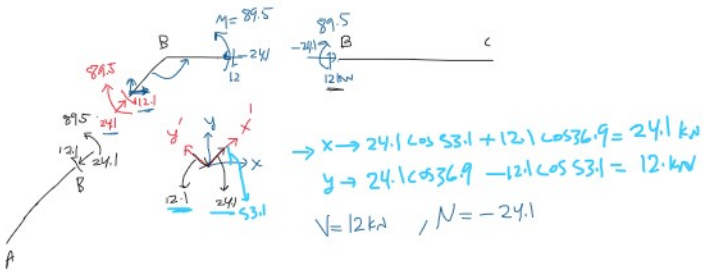 M= 89.5
B
-24.1
12
89.5
-24.1
B
C
12kN
89.5
24.1
12.1
89.5
12.1
24.1
B
A
y'
y
x'
x
12.1
24.1
53.1
→ x → 24.1 cos 53.1 + 12.1 cos36.9 = 24.1 kN
y → 24.1cos36.9 - 12.1 cos 53.1 = 12. kN
V = 12 kN , N = -24.1